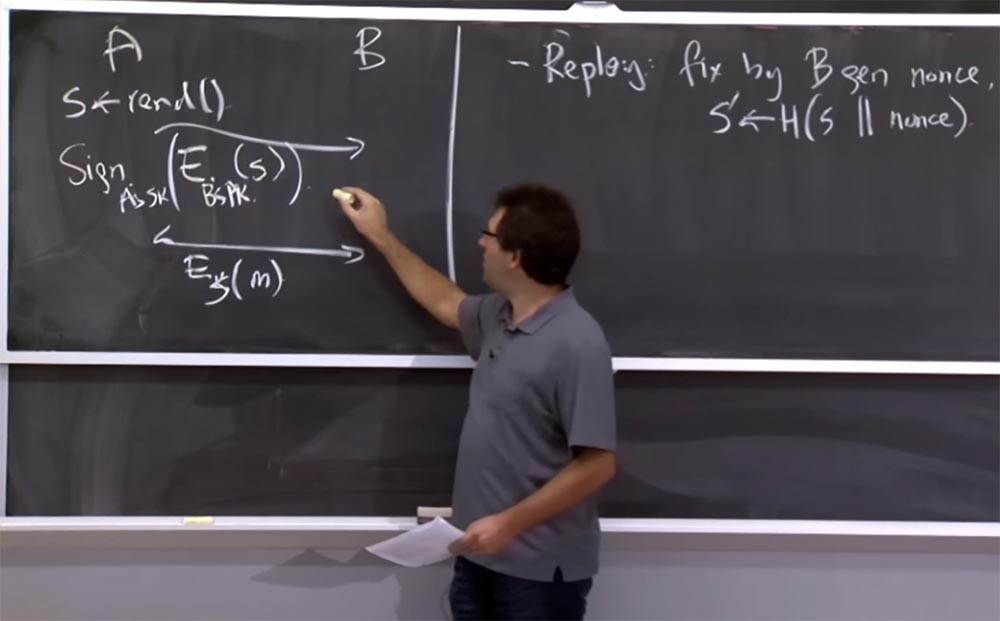 A B
S ← rand()
Sign A's SK (E B's PK (s))
E s (m)
- Replay: fix by B gen nonce,
S' ← H(s || nonce)